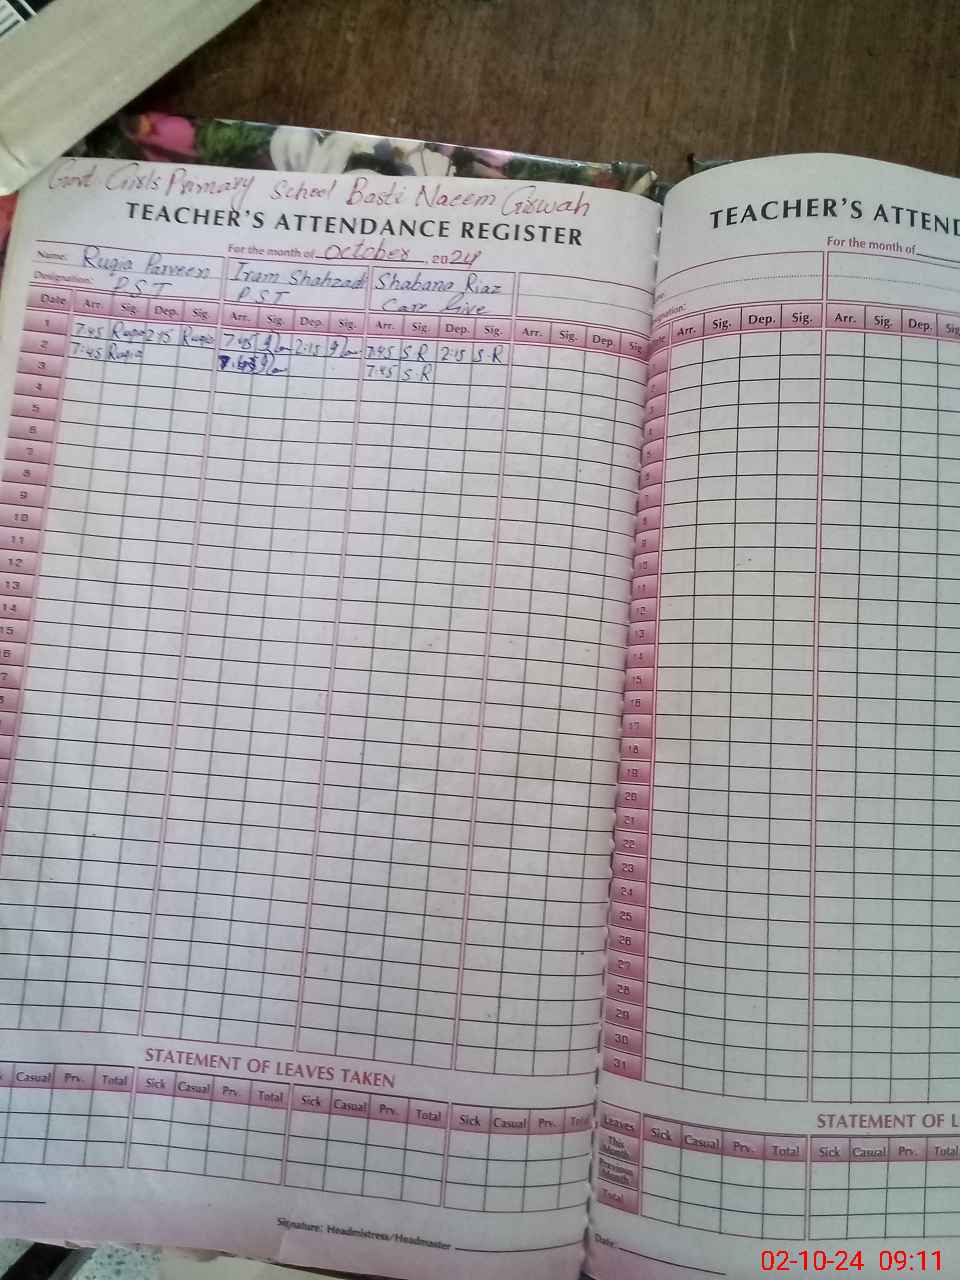 Govt. Girls Primary School Basti Naeem Giswah
TEACHER'S ATTENDANCE REGISTER
For the month of October, 2024
Name: Ruqia Parveen Iram Shahzad Shabana Riaz
Designation: P.S.T P.S.T Care Give
Date Arr. Sig. Dep. Sig. Arr. Sig. Dep. Sig. Arr. Sig. Dep. Sig. Arr. Sig. Dep. Sig.
1 7:45 Ruqia 2:15 Ruqia 7:45 2:15 7:45 S.R 2:15 S.R
2 7:45 Ruqia 7:45 7:45 S.R
3
4
5
6
7
8
9
10
11
12
13
14
15
6
7
STATEMENT OF LEAVES TAKEN
Casual Prv. Total Sick Casual Prv. Total Sick Casual Prv. Total Sick Casual Prv. Total
Signature: Headmistress/Headmaster
TEACHER'S ATTEND
For the month of
Arr. Sig. Dep. Sig. Arr. Sig. Dep. Sig.
1
2
3
4
5
6
7
8
9
10
11
12
13
14
15
16
17
18
19
20
21
22
23
24
25
26
27
28
29
30
31
STATEMENT OF L
Leaves Sick Casual Prv. Total Sick Casual Prv. Total
This Month
Previous Month
Total
Date:
02-10-24 09:11